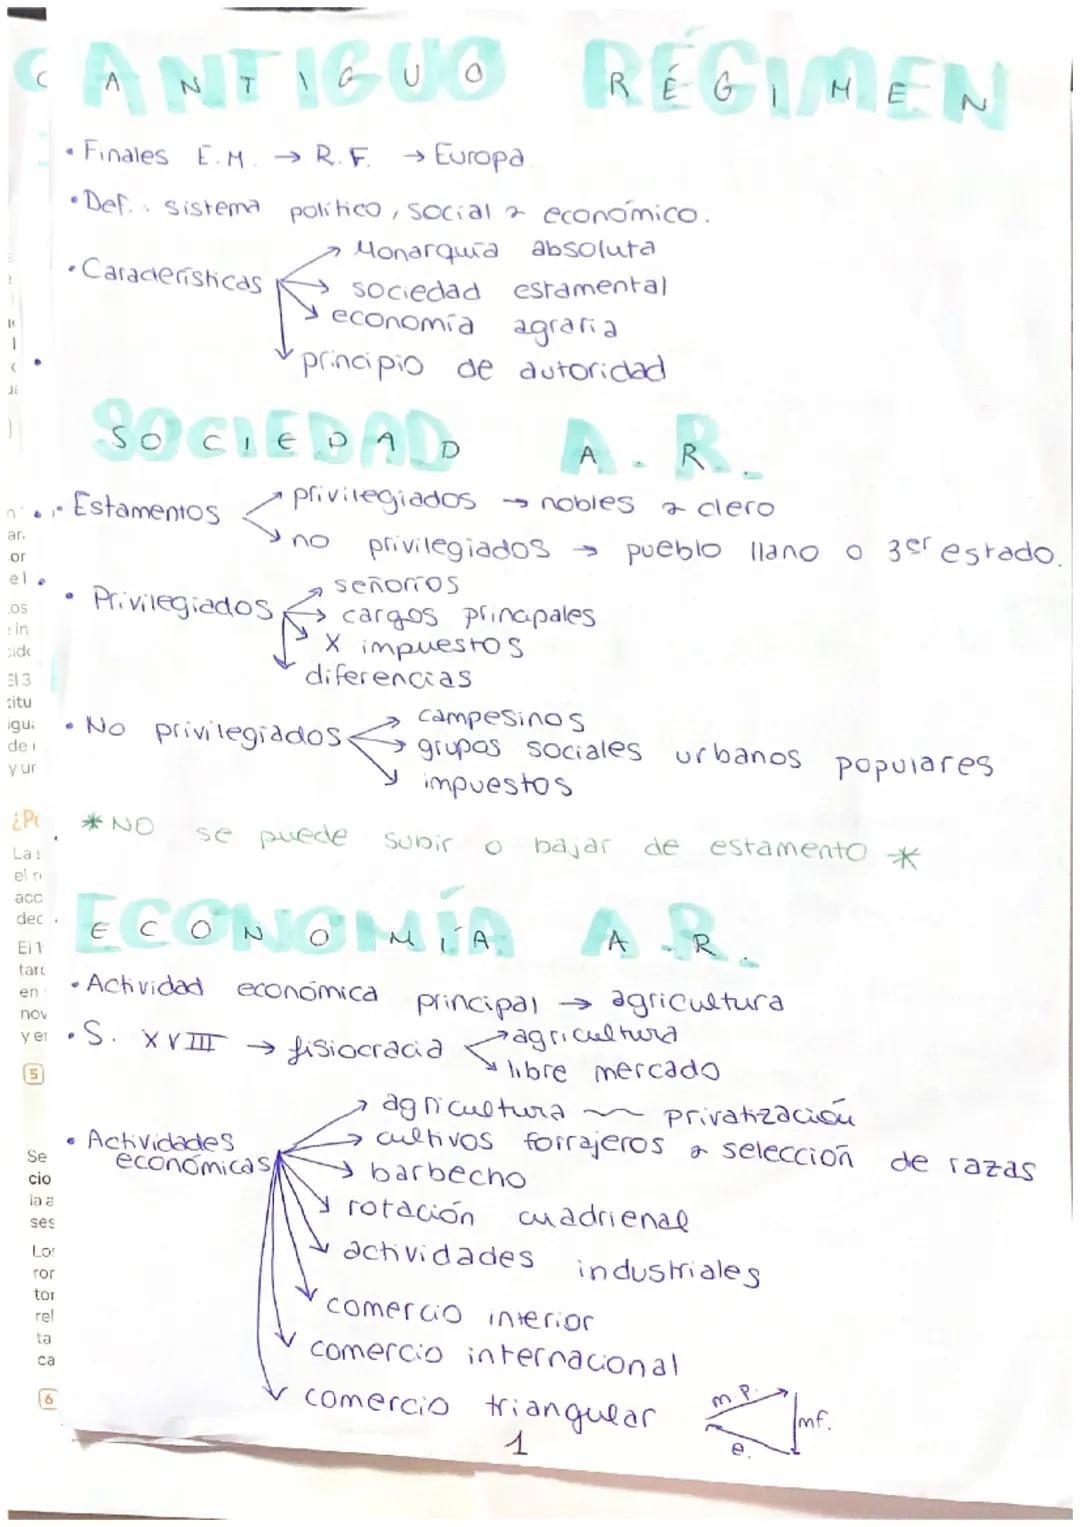 ANTIGUO RÉGIMEN
• Finales E.M. → R.F. → Europa
• Def.: sistema político, social y económico.
• Características → Monarquía absoluta
→ sociedad estamental
→ economía agraria
→ principio de autoridad
SOCIEDAD A.R.
• Estamentos → privilegiados → nobles y clero
→ no privilegiados → pueblo llano o 3er estado.
• Privilegiados → señoríos
→ cargos principales
→ X impuestos
→ diferencias
• No privilegiados → campesinos
→ grupos sociales urbanos populares
→ impuestos
* NO se puede subir o bajar de estamento *
ECONOMÍA A.R.
• Actividad económica principal → agricultura
• S. XVIII → fisiocracia → agricultura
→ libre mercado
• Actividades económicas → agricultura ~ privatización
→ cultivos forrajeros y selección de razas
→ barbecho
→ rotación cuadrienal
→ actividades industriales
→ comercio interior
→ comercio internacional
→ comercio triangular
m.p.
mf.
e.
1
5
6